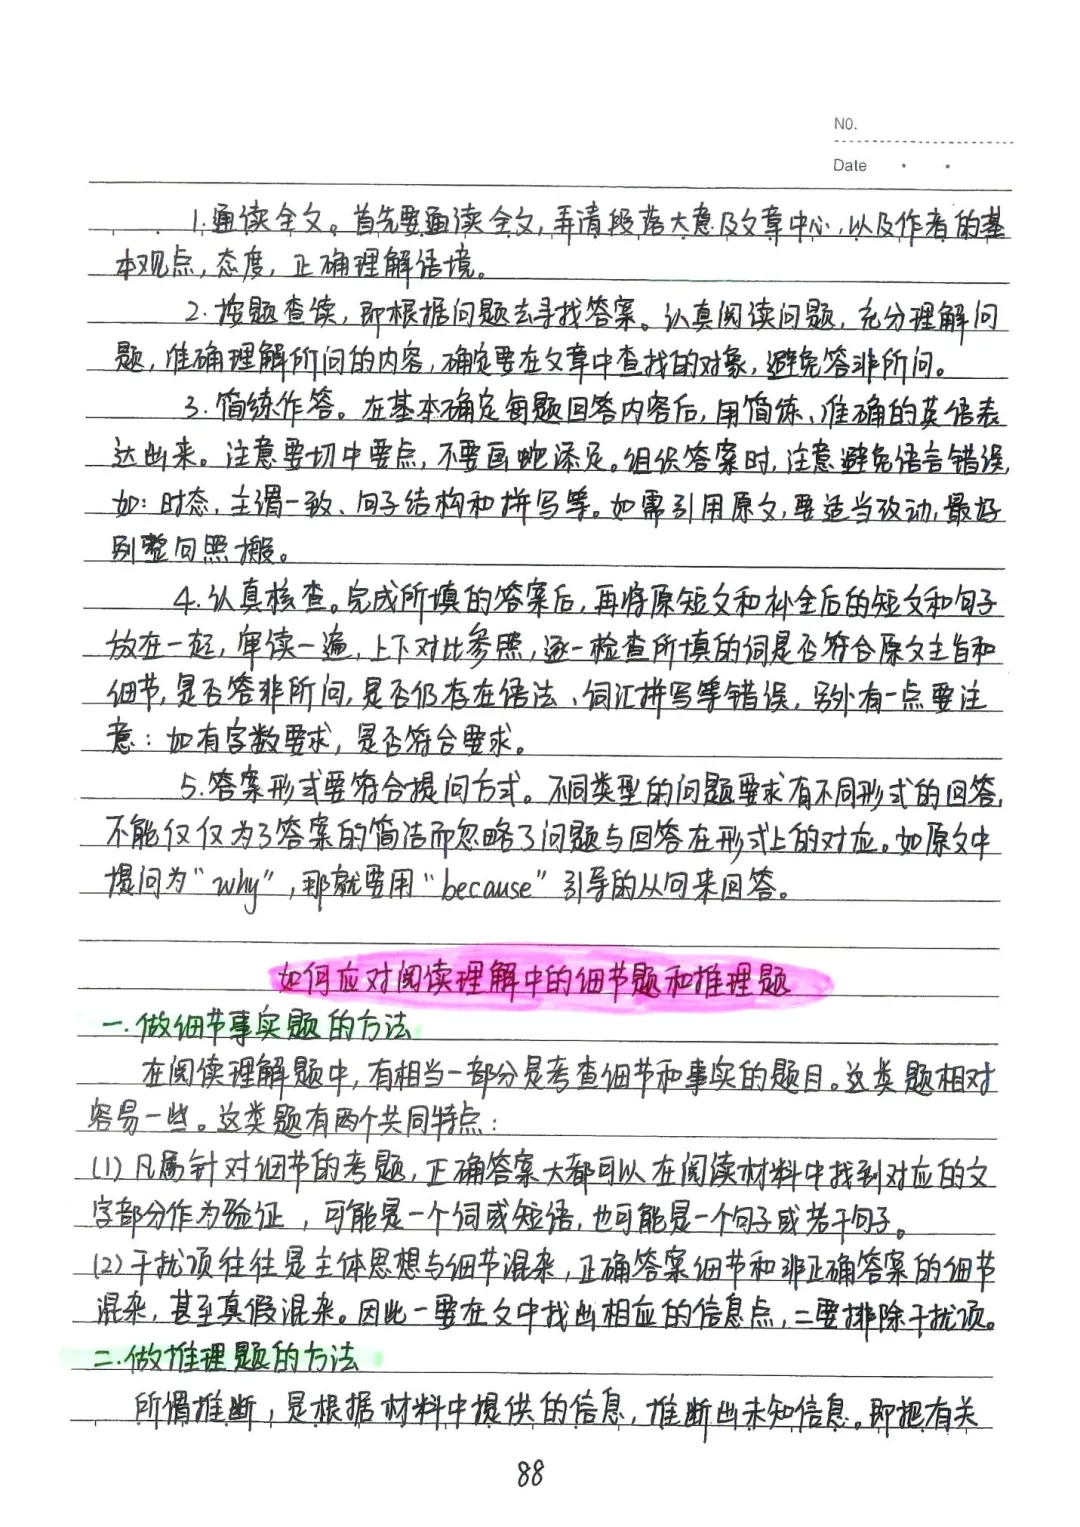 NO.
Date
1.通读全文。首先要通读全文,弄清段落大意及文章中心,以及作者的基
本观点,态度,正确理解语境。
2.按题查读,即根据问题去寻找答案。认真阅读问题,充分理解问
题,准确理解所问的内容,确定要在文章中查找的对象,避免答非所问。
3.简练作答。在基本确定每题回答内容后,用简练、准确的英语表
达出来。注意要切中要点,不要画蛇添足。组织答案时,注意避免语言错误,
如:时态,主谓一致、句子结构和拼写等。如需引用原文,要适当改动,最好
别整句照搬。
4.认真核查。完成所填的答案后,再将原短文和补全后的短文和句子
放在一起,审读一遍,上下对比参照,逐一检查所填的词是否符合原文主旨和
细节,是否答非所问,是否仍存在语法、词汇拼写等错误,另外有一点要注
意:如有字数要求,是否符合要求。
5.答案形式要符合提问方式。不同类型的问题要求有不同形式的回答,
不能仅仅为了答案的简洁而忽略了问题与回答在形式上的对应。如原文中
提问为“why”,那就要用“because”引导的从句来回答。
如何应对阅读理解中的细节题和推理题
一.做细节事实题的方法
在阅读理解题中,有相当一部分是考查细节和事实的题目。这类题相对
容易一些。这类题有两个共同特点:
(1)凡属针对细节的考题,正确答案大都可以在阅读材料中找到对应的文
字部分作为验证,可能是一个词或短语,也可能是一个句子或若干句子。
(2)干扰项往往是主体思想与细节混杂,正确答案细节和非正确答案的细节
混杂,甚至真假混杂。因此一要在文中找出相应的信息点,二要排除干扰项。
二.做推理题的方法
所谓推断,是根据材料中提供的信息,推断出未知信息。即把有关
88